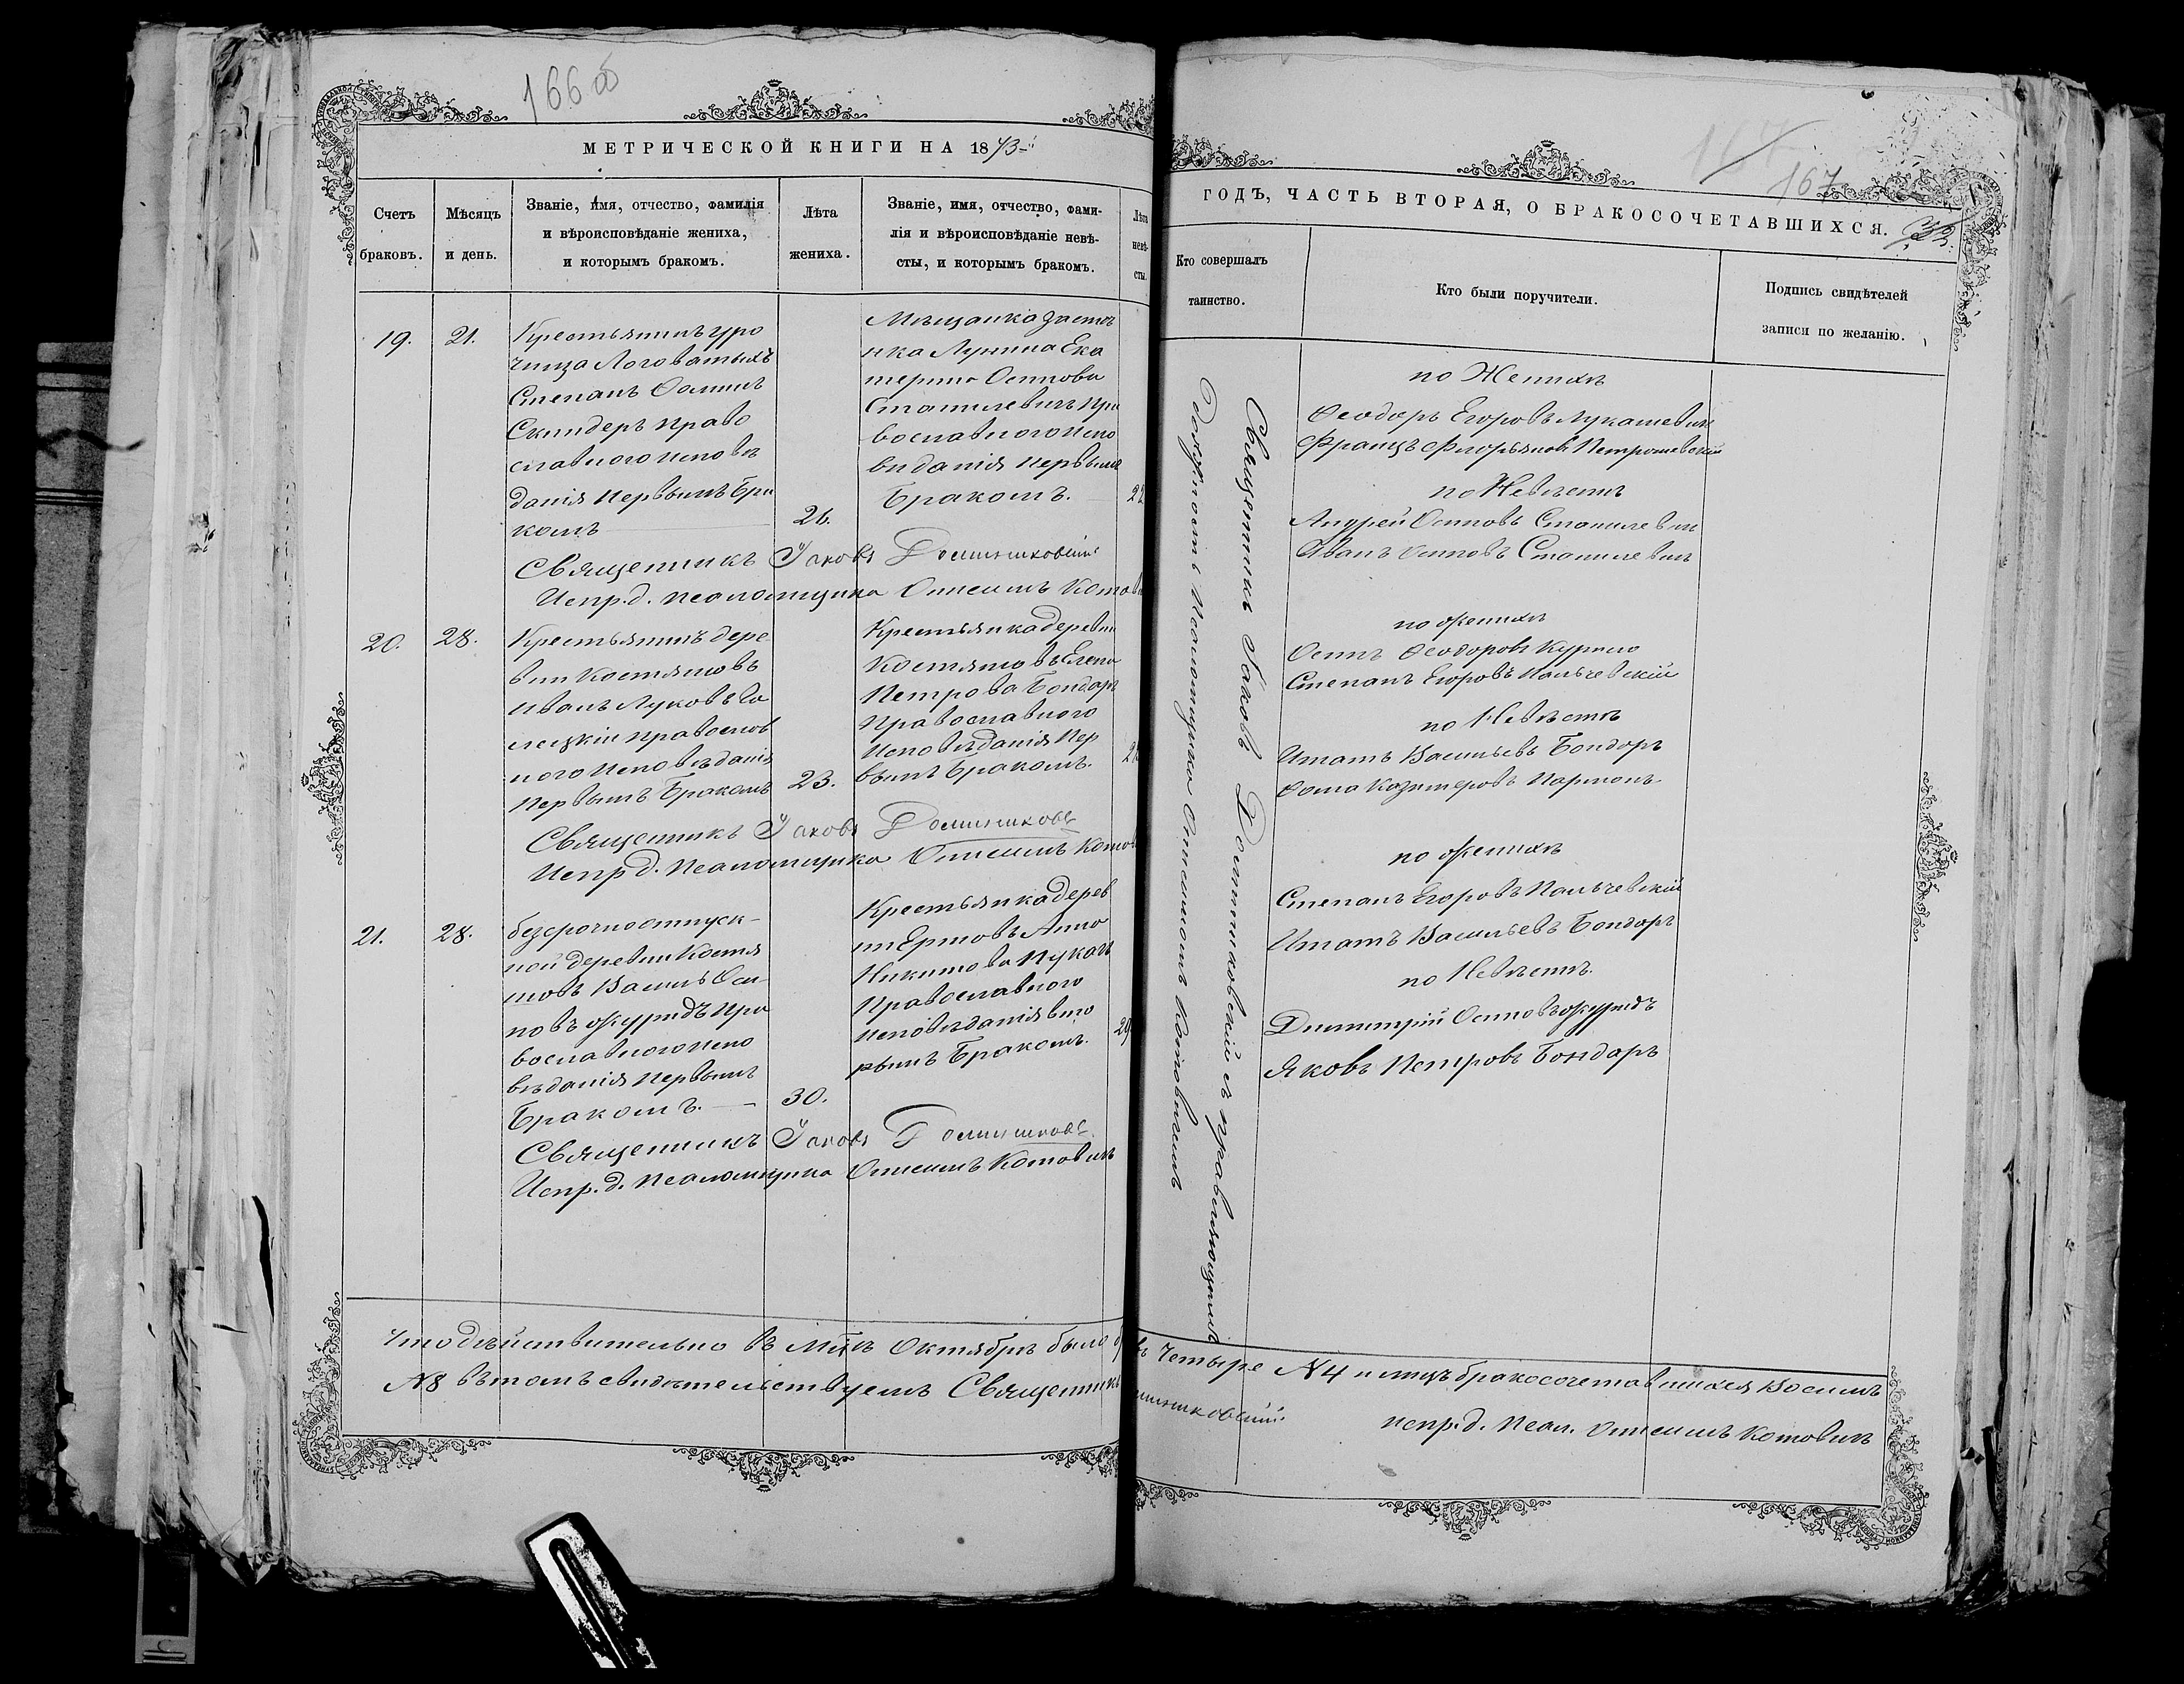 166 об
МЕТРИЧЕСКОЙ КНИГИ НА 1873
Счетъ браковъ.
Мѣсяцъ и день.
Званіе, имя, отчество, фамилія
и вѣроисповѣданіе жениха,
и которымъ бракомъ.
Лѣта жениха.
Званіе, имя, отчество, фами-
лія и вѣроисповѣданіе невѣ-
сты, и которымъ бракомъ.
Лѣта
невѣ-
сты.
19.
21.
Крестьянинъ уро
чища Логоватыхъ
Степанъ Ѳоминъ
Скиндеръ право
славного исповѣ
данія первымъ бра
комъ
26.
Мѣщанка застѣ
нка Лунина Ека
терина Осипова
Станилевичъ пра
вославного испо
виданія первымъ
бракомъ.
22
Священникъ Іаковъ Доминиковскій
Испр. д. псаломщика Онисимъ Котови
20.
28.
Крестьянинъ дере
вни Костяшовъ
Иванъ Луковъ Са
лецкій православ
ного исповѣданія
первымъ бракомъ
23.
Крестьянка деревни
Костяшовъ Елена
Петрова Бондаръ
православного
исповѣданія пер
вымъ бракомъ.
Священникъ Іаковъ Доминиковс
Испр. д. псаломщика Онисимъ Котов
21.
28.
безсрочноотпуск-
ной деревни Костя
шовъ Василь Оси-
повъ Журидъ пра
вославного испо
вѣданія первымъ
бракомъ.
30.
Крестьянка дерев
ни Ермовъ Анна
Никитова Пукачъ
православного
исповѣданія вто
рымъ бракомъ.
29
Священникъ Іаковъ Доминиковс
Испр. д. псаломщика Онисимъ Котовичъ
Что дѣйствительно въ М-цѣ Октябрѣ было бр
№ 8 вътомъ свидѣтельствуемъ Священникъ
167
ГОДЪ, ЧАСТЬ ВТОРАЯ, О БРАКОСОЧЕТАВШИХСЯ.
32.
Кто совершалъ
таинство.
Кто были поручители.
Подпись свидѣтелей
записи по желанію.
Священникъ Іаковъ Доминиковскій съ исправляющимъ
должность псаломщика Онисимомъ Котовичемъ
по Женихѣ
Ѳеодоръ Егоровъ Лукашевичъ
Францъ Флорьяновъ Петрашевскій
по Невѣстѣ
Андрей Осиповъ Станилевичъ
Иванъ Осиповъ Станилевичъ
по Женихѣ
Осипъ Ѳеодоровъ Курило
Степанъ Егоровъ Пальчевскій
по Невѣстѣ
Игнатъ Васильевъ Бондоръ
Ѳома Казимеровъ Пармонъ
по Женихѣ
Степанъ Егоровъ Пальчевскій
Игнатъ Васильевъ Бондоръ
по Невѣстѣ.
Димитрій Осиповъ Журидъ
Яковъ Петровъ Бондаръ
въ четыре № 4 и лицъ бракосочетавшихся восемъ
миниковскій.
испр. д. псал. Онисимъ Котовичъ